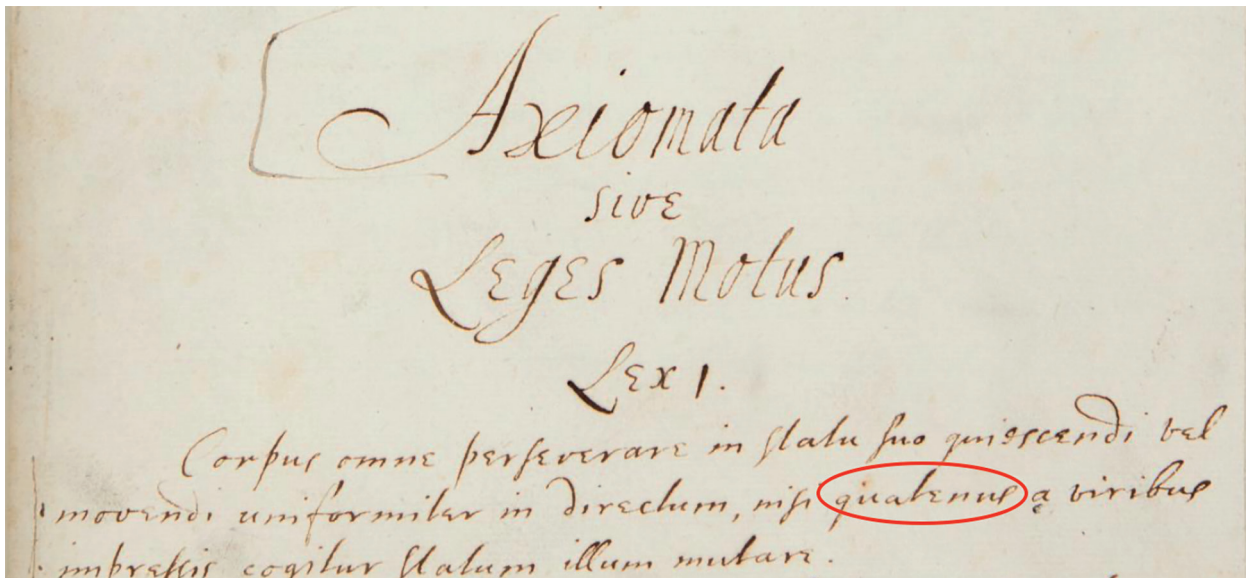 Axiomata
sive
Leges Motus.
Lex 1.
Corpus omne perseverare in statu suo quiescendi vel
movendi uniformiter in directum, nisi quatenus a viribus
impressis cogitur statum illum mutare.